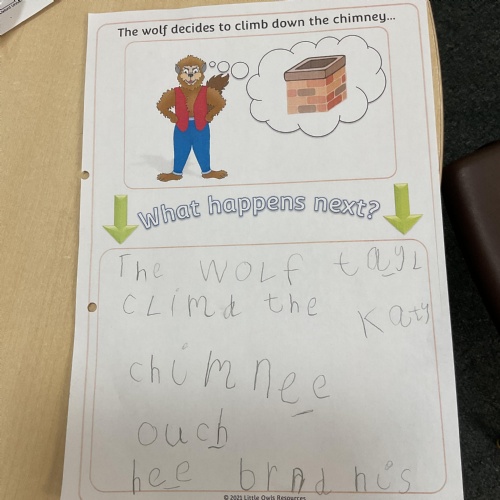 The wolf decides to climb down the chimney...
What happens next?
The WOLf tayL
CLimd the
Katy
chimnee
ouch
hee brnd his
© 2021 Little Owls Resources